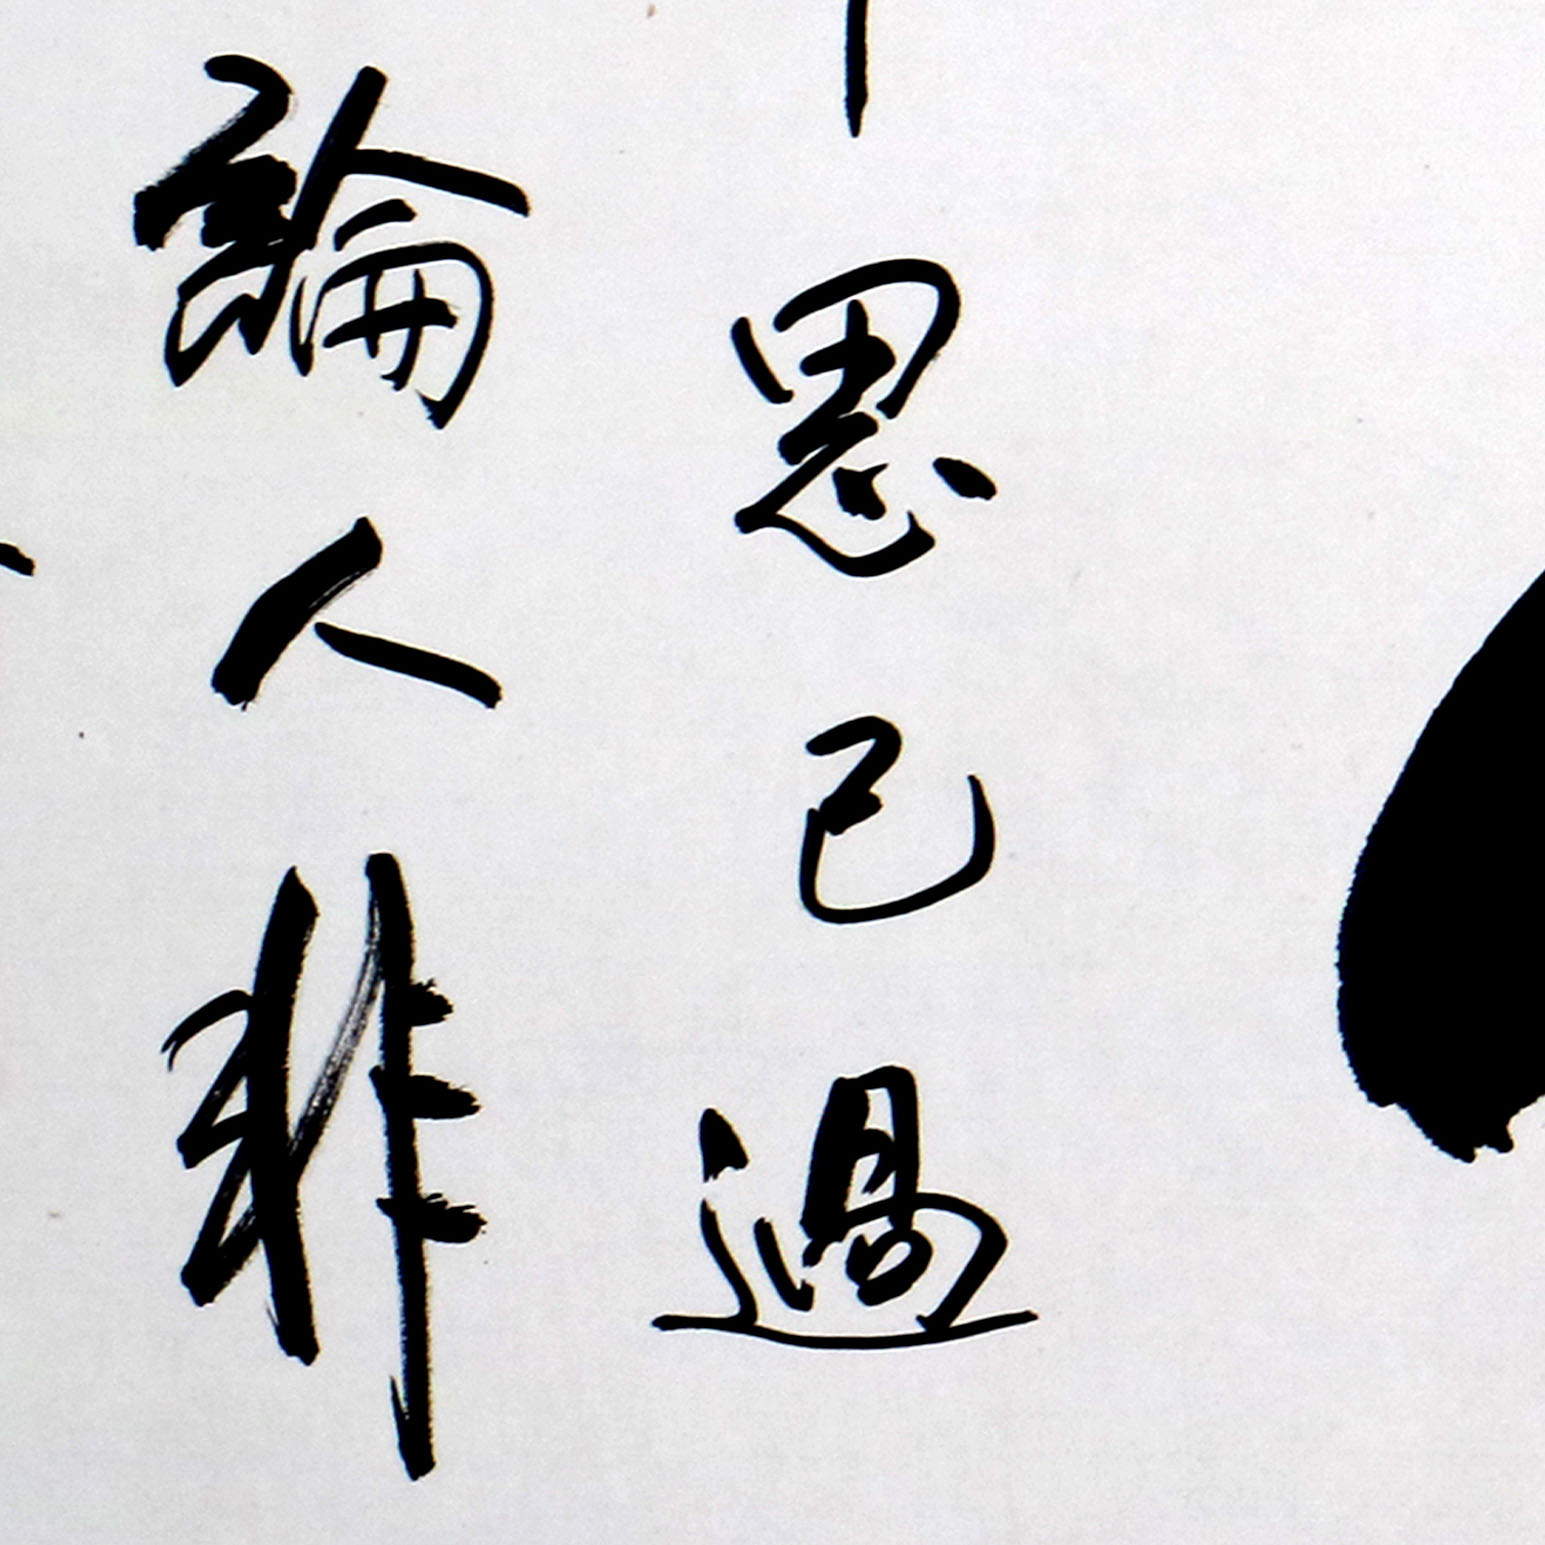 思己過
論人非